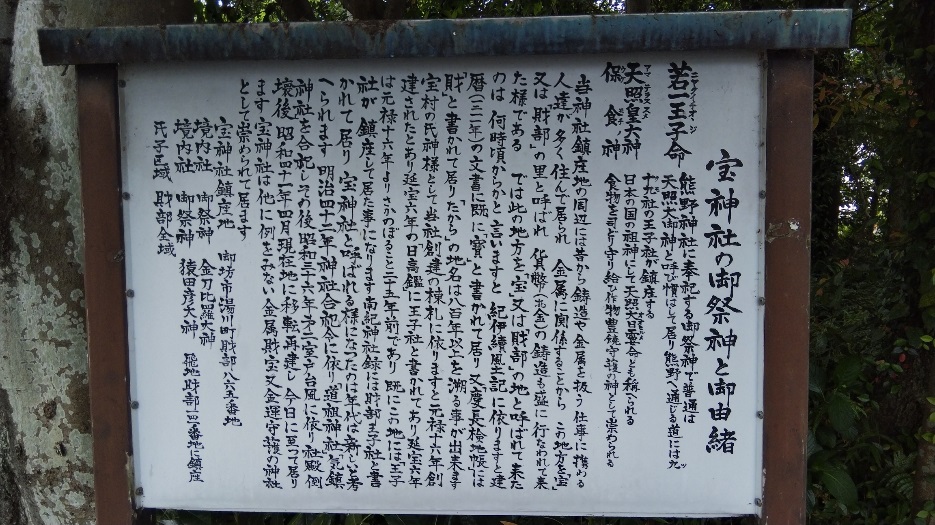 宝神社の御祭神と御由緒
若一王子命
熊野神社に奉祀する御祭神で普通は
天照大御神と呼び慣はして居り熊野へ通じる道には九
十九社の王子社が鎮座する
天照皇大神
日本の国の祖神にして天照大日孁命とも称へられる
保食ノ神
食物を司どり守り給ひ作物豊饒守護の神として崇められる
当神社鎮座地の周辺には昔から鋳造や金属を扱う仕事に携わる
人達が多く住んで居られ 金属に関係することから この地方を「宝」
又は「財部」の里と呼ばれ 貨幣(七金)の鋳造も盛に行なわれて来
た様である では此の地方を「宝」又は「財部」の地と呼ばれて来た
のは 何時頃からかと言いますと 紀伊續風土記に依りますと建
暦(二二年)の文書に既に「寳」と書かれて居り又慶長検地帳には
「財」と書かれて居り「たから」の地名は八百年以上を溯る事が出来ます
宝村の氏神様として当社創建の棟札に依りますと元禄十六年創
建されたとあり延宝六年の日高鑑に王子社と書かれてあり延宝六年
は元禄十六年よりさかのぼること二十五年前であり 既にこの地には王子
社が鎮座して居た事になります南紀神社録には財部王子社と書
かれて居り 宝神社と呼ばれる様になつたのは年代は新しいと考
へられます 明治四十二年神社合祀令に依り 道祖神社 気鎮
神社を合祀しその後昭和三十六年才二室戸台風に依り社殿倒
壊後 昭和四十一年四月現在地に移転再建し今日に至って居り
ます 宝神社は他に例をみない金属財宝又金運守護の神社
として崇められて居ます
宝神社鎮座地 御坊市湯川町財部八六五番地
境内社 御祭神 金刀比羅大神
境内社 御祭神 猿田彦大神 飛地財部一四番地に鎮座
氏子区域 財部全域